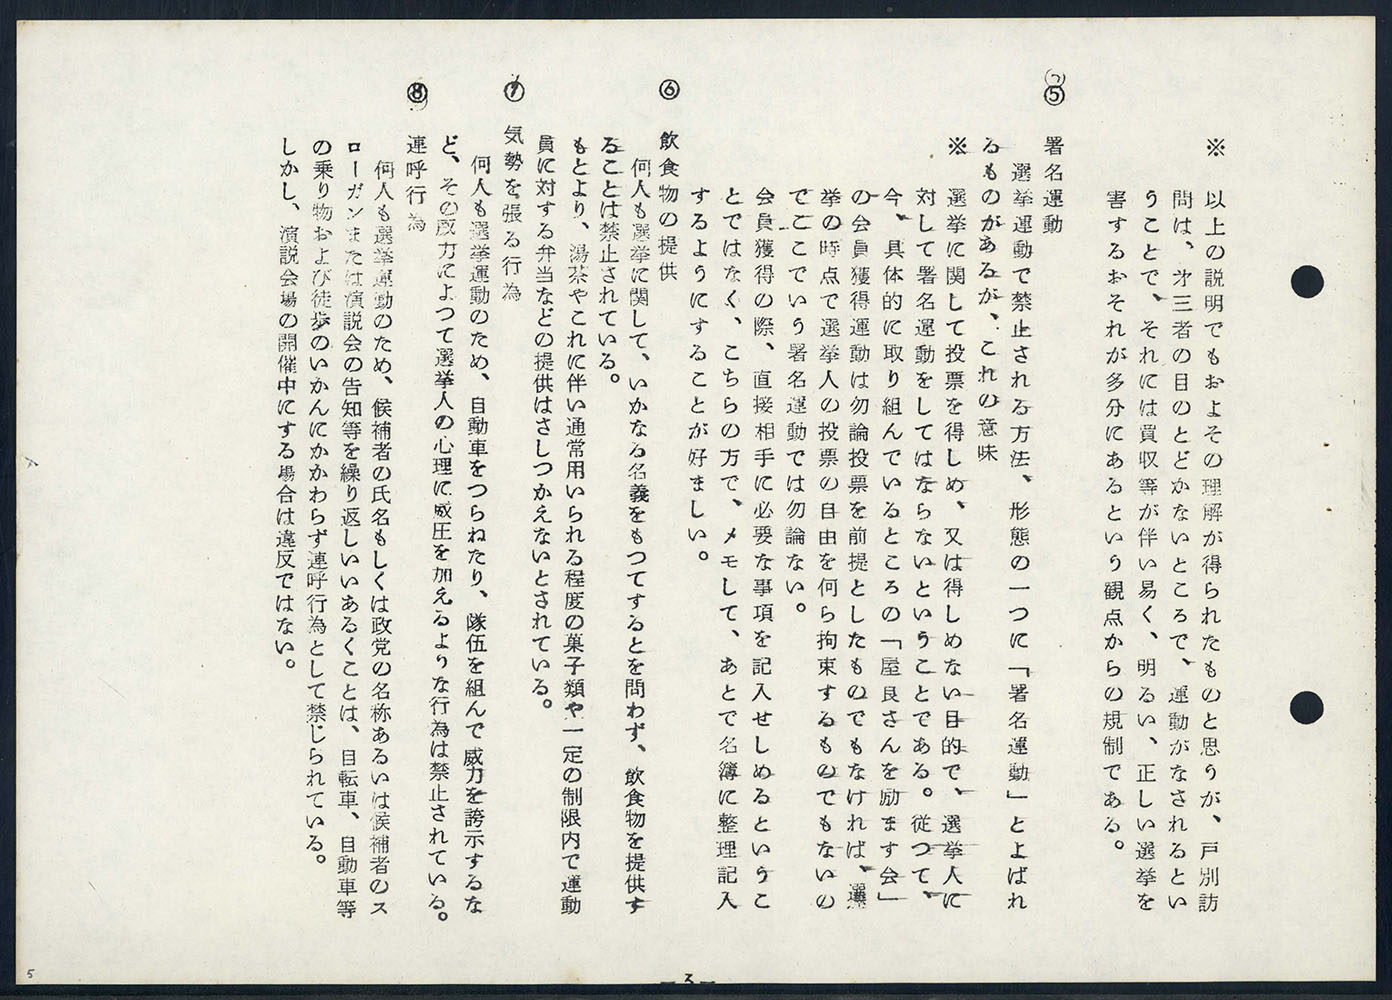 ※　以上の説明でもおよその理解が得られたものと思うが、戸別訪
問は、才三者の目のとどかないところで、運動がなされるとい
うことで、それには買収等が伴い易く、明るい、正しい選挙を
害するおそれが多分にあるという観点からの規制である。
⑤　署名運動
選挙運動で禁止される方法、形態の一つに「署名運動」とよばれ
るものがあるが、これの意味
※　選挙に関して投票を得しめ、又は得しめない目的で、選挙人に
対して署名運動をしてはならないということである。従つて、
今、具体的に取り組んでいるところの「屋良さんを励ます会」
の会員獲得運動は勿論投票を前提としたものでもなければ、選
挙の時点で選挙人の投票の自由を何ら拘束するものでもないの
でここでいう署名運動では勿論ない。
会員獲得の際、直接相手に必要な事項を記入せしめるというこ
とではなく、こちらの方で、メモして、あとで名簿に整理記入
するようにすることが好ましい。
⑥　飲食物の提供
何人も選挙に関して、いかなる名義をもつてするとを問わず、飲食物を提供す
ることは禁止されている。
もとより、湯茶やこれに伴い通常用いられる程度の菓子類や一定の制限内で運動
員に対する弁当などの提供はさしつかえないとされている。
⑦　気勢を張る行為
何人も選挙運動のため、自動車をつらねたり、隊伍を組んで威力を誇示するな
ど、その威力によつて選挙人の心理に威圧を加えるような行為は禁止されている。
⑧　連呼行為
何人も選挙運動のため、候補者の氏名もしくは政党の名称あるいは候補者のス
ローガンまたは演説会の告知等を繰り返しいいあるくことは、自転車、自動車等
の乗り物および徒歩のいかんにかかわらず連呼行為として禁じられている。
しかし、演説会場の開催中にする場合は違反ではない。
— 3 —
5